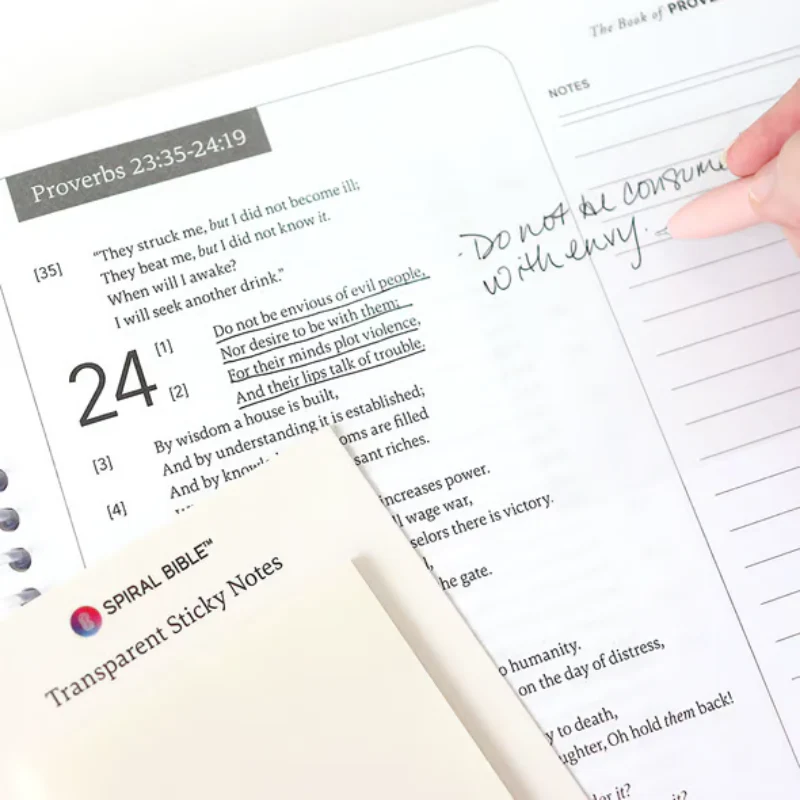 The Book of
NOTES
Proverbs 23:35-24:19
[35] “They struck me, but I did not become ill;
They beat me, but I did not know it.
When will I awake?
I will seek another drink.”
24 [1] Do not be envious of evil people,
Nor desire to be with them;
[2] For their minds plot violence,
And their lips talk of trouble.
[3] By wisdom a house is built,
And by understanding it is established;
[4] And by oms are filled
sant riches.
increases power.
wage war,
selors there is victory.
he gate.
o humanity.
on the day of distress,
y to death,
ughter, Oh hold them back!
it?
it?
· Do not be consume
with envy.
SPIRAL BIBLE™
Transparent Sticky Notes